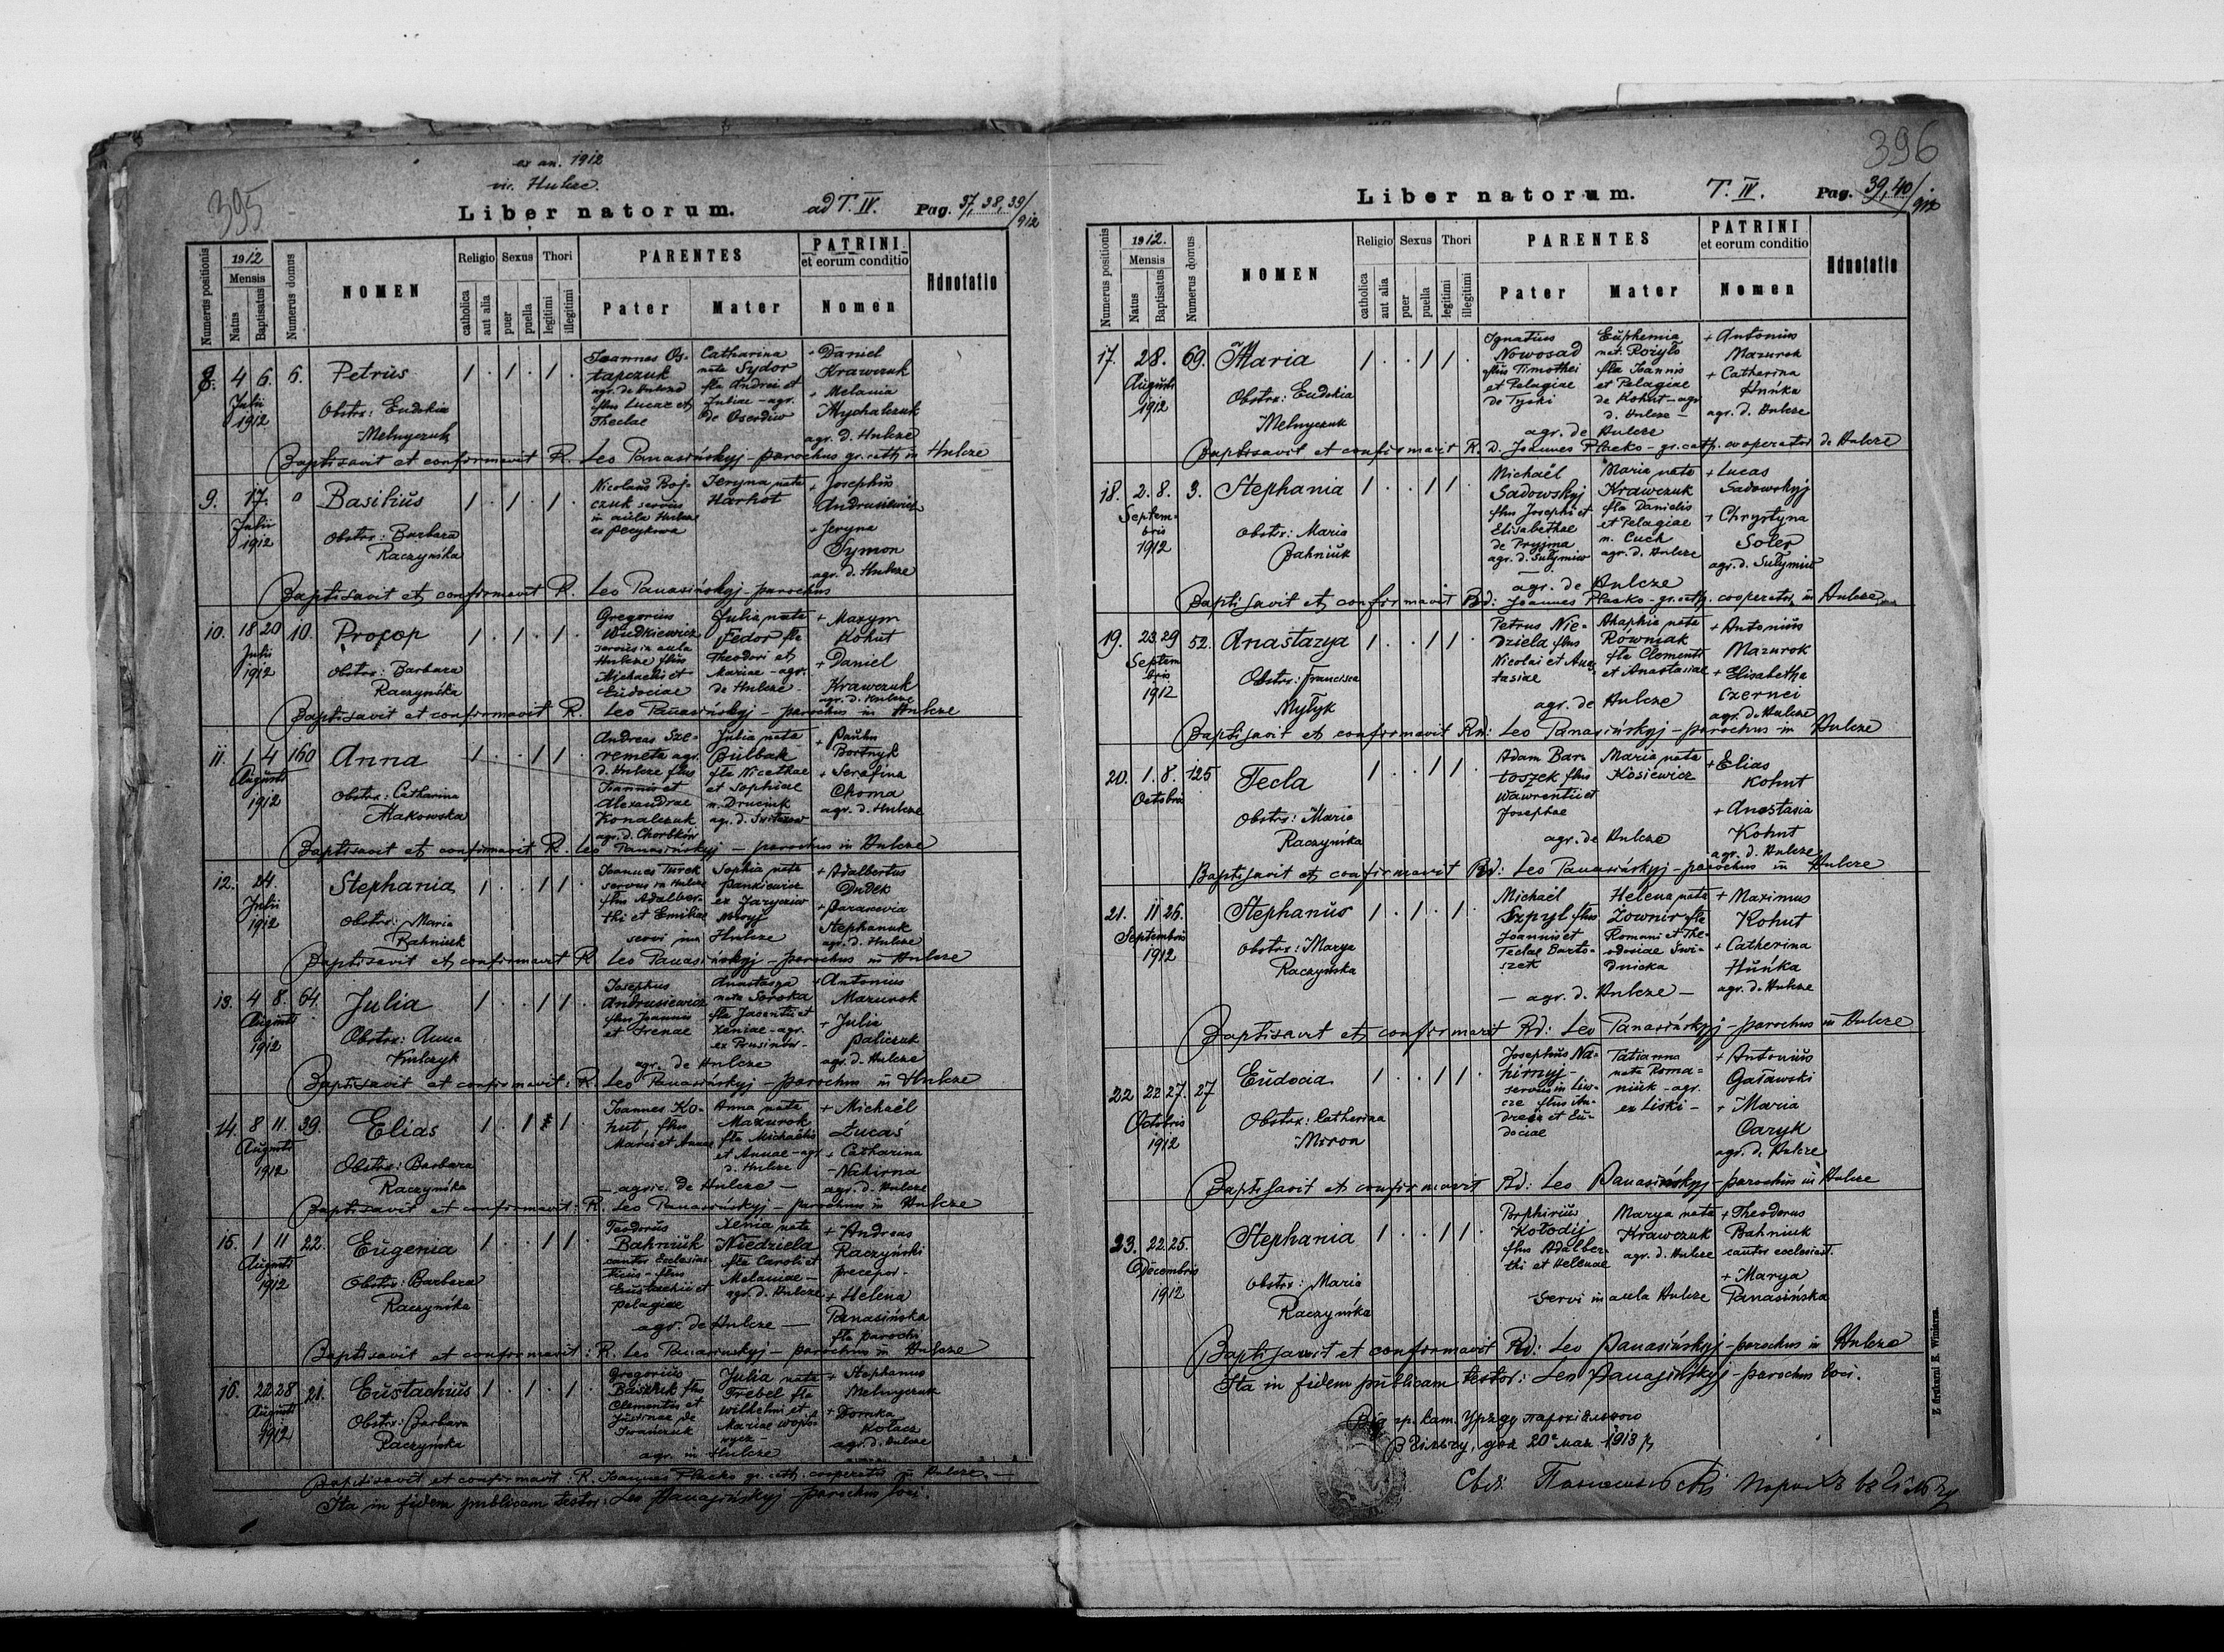 395
ex an. 1912
vic. Hulcze.
Liber natorum. ad T. IV. Pag. 37, 38, 39/912
Numerus positionis
1912
Mensis
Natus
Baptisatus
Numerus domus
NOMEN
Religio
catholica
aut alia
Sexus
puer
puella
Thori
legitimi
illegitimi
PARENTES
Pater
Mater
PATRINI
et eorum conditio
Nomen
Adnotatio
8. 4 6. 6. Petrus 1 . 1 . 1 .
Julii
1912
Obstrx: Eudokia
Melnyczuk
Joannes Os-
tapczuk
agr. de Hulcze
flius Lucae et
Theclae
Catharina
nata Sydor
fla Andrei et
Juliae - agr.
de Oserdiw
+ Daniel
Krawczuk
+ Melania
Mychalczuk
agr. d. Hulcze
Baptisavit et confirmavit R. Leo Panasińskyj - parochus gr. cath. in Hulcze
9. 17. 0 Basilius 1 . 1 . 1 .
Julii
1912
Obstrx: Barbara
Raczyńska
Nicolaus Boj-
czuk servus
in aula Hulcze
Jeryna nata
Harhot
+ Josephus
Andrusiewicz
+ Jeryna
Symon
agr. d. Hulcze
Baptisavit et confirmavit R. Leo Panasińskyj - parochus
10. 18 20 10. Procop 1 . 1 . 1 .
Julii
1912
Obstrx: Barbara
Raczyńska
Gregorius
Wudkiewicz
servus in aula
Hulcze flius
Michaelis et
Eudociae
Julia nata
Fedor fla
Theodori et
Mariae - agr.
de Hulcze -
+ Maxym
Kohut
+ Daniel
Krawczuk
agr. d. Hulcze
Baptisavit et confirmavit R. Leo Panasińskyj - parochus in Hulcze
11. 1 4 160 Anna 1 . . 1 1 .
Augusti
1912
Obstrx: Catharina
Makowska
Andreas Sze-
remeta agr.
d. Hulcze flius
Joannis et
Alexandrae
Konalczuk
agr. d. Chorbków
Julia nata
Bulbak
fla Nicethae
et Sophiae
n. Druciuk
+ Paulus
Bortnyk
+ Serafina
Choma
agr. d. Hulcze
Baptisavit et confirmavit R. Leo Panasińskyj - parochus in Hulcze
12. 24. Stephania 1 . . 1 1 .
Julii
1912
Obstrx: Maria
Bahniuk
Joannes Turek
servus in Hulcze
flius Adalber-
thi et Emiliae
Sophia nata
Pankiewicz
ex Jaryczów
Nowyj
servi in Hulcze
+ Adalbertus
Dudek
+ Parascevia
Stephanuk
agr. d. Hulcze
Baptisavit et confirmavit R. Leo Panasińskyj - parochus in Hulcze
13. 4 8. 64. Julia 1 . . 1 1 .
Augusti
1912
Obstrx: Anna
Kulczyk
Josephus
Andrusiewicz
flius Joannis
et Irenae
Anastasya
nata Soroka
fla Jacentii et
Xeniae - agr.
ex Prusinów -
agr. de Hulcze
+ Antonius
Mazurok
+ Julia
Paliczuk
agr. d. Hulcze
Baptisavit et confirmavit: R. Leo Panasińskyj - parochus in Hulcze
14. 8 11. 39. Elias 1 . 1 1 .
Augusti
1912
Obstrx: Barbara
Raczyńska
Joannes Ko-
hut, flius
Marci et Annae
Anna nata
Mazurok
fla Michaëlis
et Annae - agr.
d. Hulcze
- agric. de Hulcze -
+ Michaël
Łucaś
+ Catharina
Nahirna
agr. d. Hulcze
Baptisavit et confirmavit: R. Leo Panasińskyj - parochus in Hulcze
15. 1 11 22. Eugenia 1 . . 1 1 .
Augusti
1912
Obstrx: Barbara
Raczyńska
Teodorus
Bahniuk
cantor ecclesias-
ticus - flius
Eustachii et
Pelagiae
Xenia nata
Niedziela
fla Caroli et
Melaniae -
agr. d. Hulcze
agr. de Hulcze -
+ Andreas
Raczyński
+ Helena
Panasińska
fla parochi
Baptisavit et confirmavit: R. Leo Panasińskyj - parochus in Hulcze
16. 22 28 21. Eustachius 1 . 1 . 1 .
Augusti
1912
Obstrx: Barbara
Raczyńska
Gregorius
flius
Clementis et
Iwańczuk
Julia nata
Trebel fla
Wilhelmi et
Mariae
agr. in Hulcze
+ Stephanus
Melnyczuk
+ Domka
Kołacz
agr. d. Hulcze
Baptisavit et confirmavit: R. Joannes Placko gr. cath. cooperator in Hulcze. -
Ita in fidem publicam testor: Leo Panasińskyj - parochus loci.
396
Liber natorum. T. IV. Pag. 39, 40/912
Numerus positionis
1912.
Mensis
Natus
Baptisatus
Numerus domus
NOMEN
Religio
catholica
aut alia
Sexus
puer
puella
Thori
legitimi
illegitimi
PARENTES
Pater
Mater
PATRINI
et eorum conditio
Nomen
Adnotatio
17. 28. 69. Maria 1 . . 1 1 .
Augusti
1912
Obstrx: Eudokia
Melnyczuk
Ignatius
Nowosad
flius Timothei
et Pelagiae
de Tyski
Euphemia
nat. Rożyło
fla Joannis
et Pelagiae
de Kohut - agr.
d. Hulcze -
agr. de Hulcze
+ Antonius
Mazurok
+ Catherina
Huńka
agr. d. Hulcze
Baptisavit et confirmavit R. D. Joannes Placko - gr. cath. cooperator de Hulcze
18. 2. 8. 3. Stephania 1 . . 1 1 .
Septem-
bris
1912
Obstrx: Maria
Bahniuk
Michaël
Sadowskyj
flius Josephi et
Elisabethae
de Pryjma
agr. d. Sulymiw
Maria nata
Krawczuk
fla Danielis
et Pelagiae
n. Cuch
agr. d. Hulcze
agr. de Hulcze
+ Lucas
Sadowskyj
+ Chrystyna
Soler
agr. d. Sulymiw
Baptisavit et confirmavit Rd: Joannes Placko - gr. cath. cooperator in Hulcze
19. 23. 29 52. Anastazya 1 . . 1 1 .
Septem
bris
1912
Obstrx: Francisca
Mytyk
Petrus Nie-
dziela flius
Nicolai et Anas-
tasiae
Ahaphia nata
Równiak
fla Clementi
et Anastasiae
agr. de Hulcze
+ Antonius
Mazurok
+ Elisabetha
Czernei
agr. d. Hulcze
Baptisavit et confirmavit Rd: Leo Panasińskyj - parochus in Hulcze
20. 1. 8. 125 Tecla 1 . . 1 1 .
Octobris
Obstrx: Maria
Raczyńska
Adam Bar-
toszek flius
Wawrentii et
Josephae
Maria nata
Kosiewicz
agr. de Hulcze
+ Elias
Kohut
+ Anastasia
Kohut
agr. d. Hulcze
Baptisavit et confirmavit Rd: Leo Panasińskyj - parochus in Hulcze
21. 11 26. Stephanus 1 . 1 . 1 .
Septembris
1912
Obstrx: Marya
Raczyńska
Michaël
Szpyl flius
Joannis et
Teclae Barto-
szek
Helena nata
Żownir fla
Romani et The-
odosiae Swi-
dnicka
- agr. d. Hulcze -
+ Maximus
Kohut
+ Catherina
Huńka
agr. d. Hulcze
Baptisavit et confirmavit Rd: Leo Panasińskyj - parochus in Hulcze
22 22 27. 27 Eudocia 1 . . 1 1 .
Octobris
1912
Obstrx: Catherina
Miron
Josephus Na-
hirnyj -
servus in Liw-
cze flius An-
dreae et Eu-
dociae
Tatianna
nata Roma-
niuk - agr.
ex Liski -
+ Antonius
Gaławski
+ Maria
Caryk
agr. d. Hulcze
Baptisavit et confirmavit Rd: Leo Panasińskyj - parochus in Hulcze
23. 22. 25. Stephania 1 . . 1 1 .
Decembris
1912
Obstrx: Maria
Raczyńska
Porphirius
Kołodij
flius Adalber-
thi et Helenae
Marya nata
Krawczuk
agr. d. Hulcze
servi in aula Hulcze
+ Theodorus
Bahniuk
cantor ecclesiast.
+ Marya
Panasińska
Baptisavit et confirmavit Rd: Leo Panasińskyj - parochus in Hulcze
Ita in fidem publicam testor: Leo Panasińskyj - parochus loci.
Від гр. кат. Уряду парохіяльного
В Гільчу, дня 20 мая 1913 р.
Z drukarni E. Winiarza.